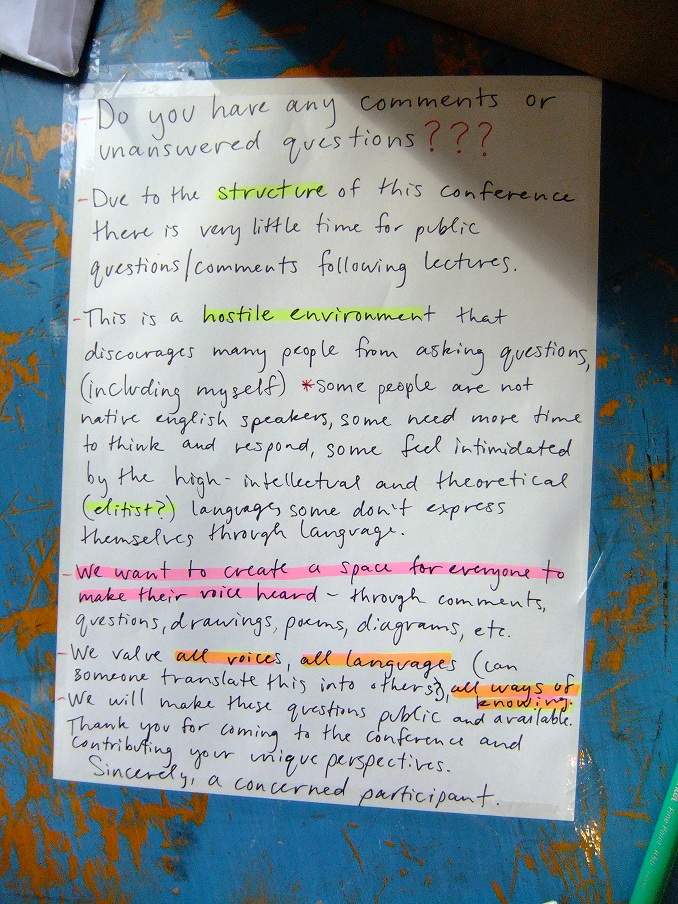 - Do you have any comments or
unanswered questions???
- Due to the structure of this conference
there is very little time for public
questions/comments following lectures.
- This is a hostile environment that
discourages many people from asking questions,
(including myself) *some people are not
native english speakers, some need more time
to think and respond, some feel intimidated
by the high-intellectual and theoretical
(elitist?) language, some don't express
themselves through language.
- We want to create a space for everyone to
make their voice heard - through comments,
questions, drawings, poems, diagrams, etc.
- We value all voices, all languages (can
someone translate this into others?), all ways of
knowing.
- We will make these questions public and available.
Thank you for coming to the conference and
contributing your unique perspectives.
Sincerely, a concerned participant.